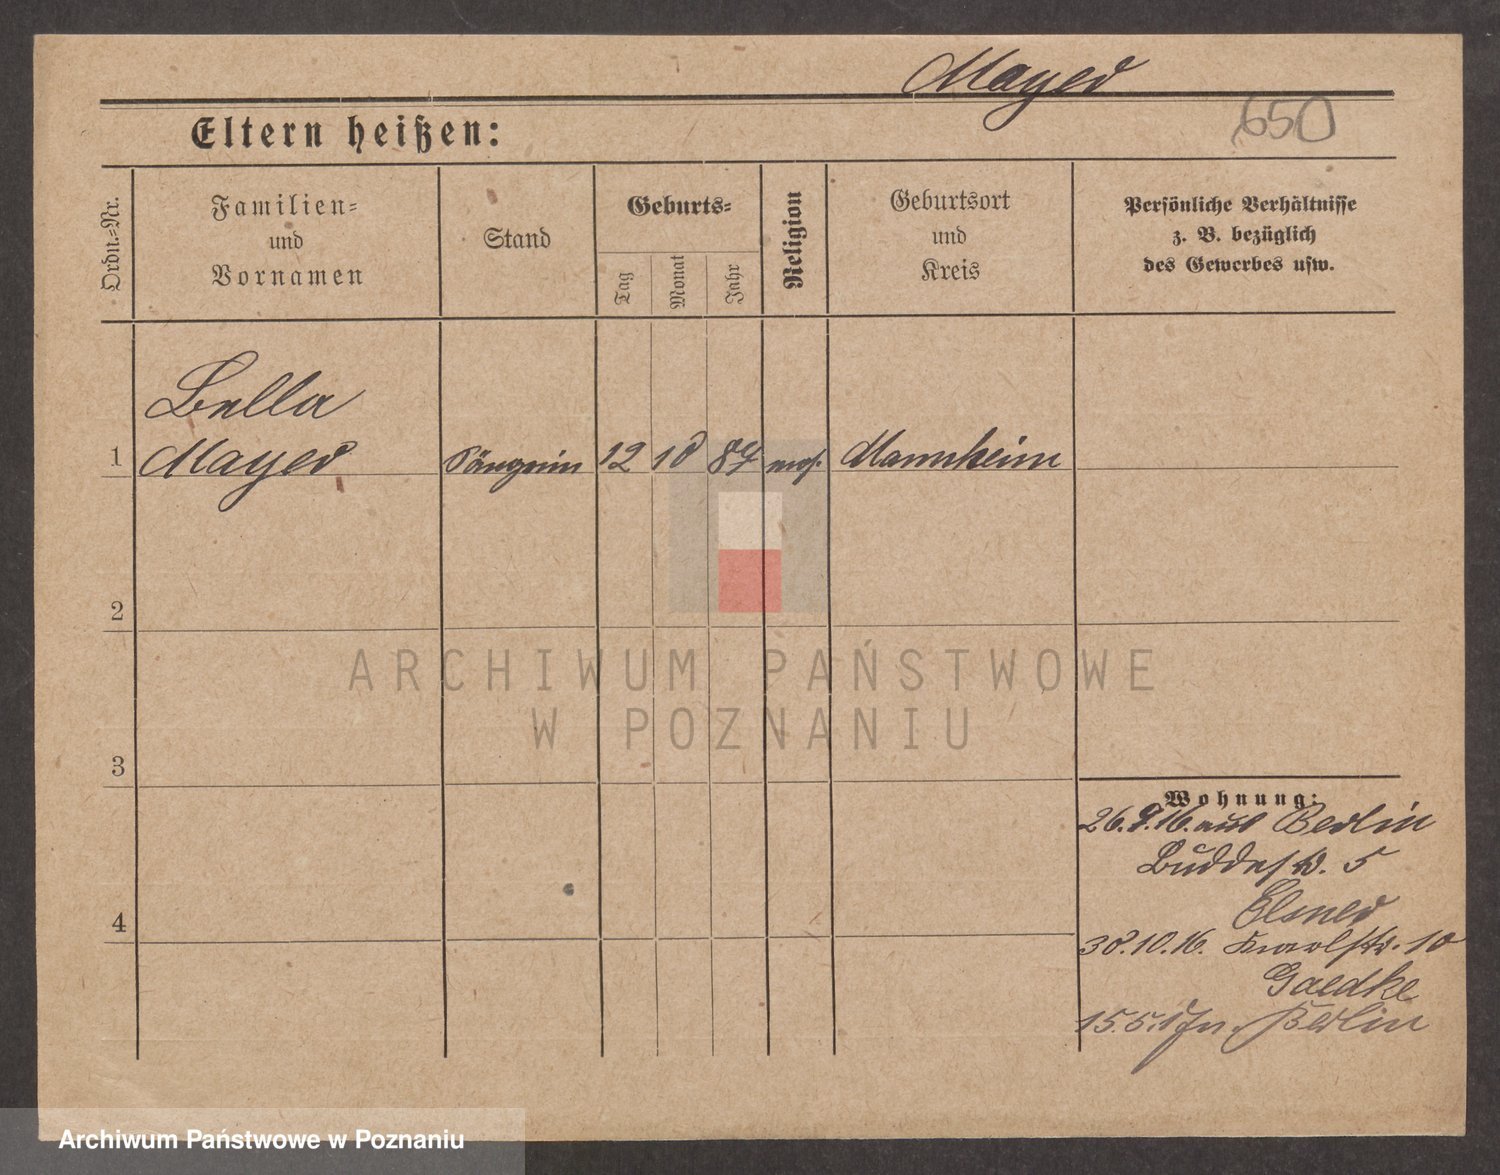 Mayer
650
Eltern heißen:
Ordn.-Nr.
Familien-
und
Vornamen
Stand
Geburts-
Tag
Monat
Jahr
Religion
Geburtsort
und
Kreis
Persönliche Verhältnisse
z. B. bezüglich
des Gewerbes usw.
Bella
1 Mayer Sängerin 12 10 87 mos. Mannheim
2
3
4
Wohnung:
26.9.16. aus Berlin
Buddestr. 5
Elsner
30.10.16. Karolstr. 10
Gaedke
15.5.17 n. Berlin
ARCHIWUM PAŃSTWOWE
W POZNANIU
Archiwum Państwowe w Poznaniu